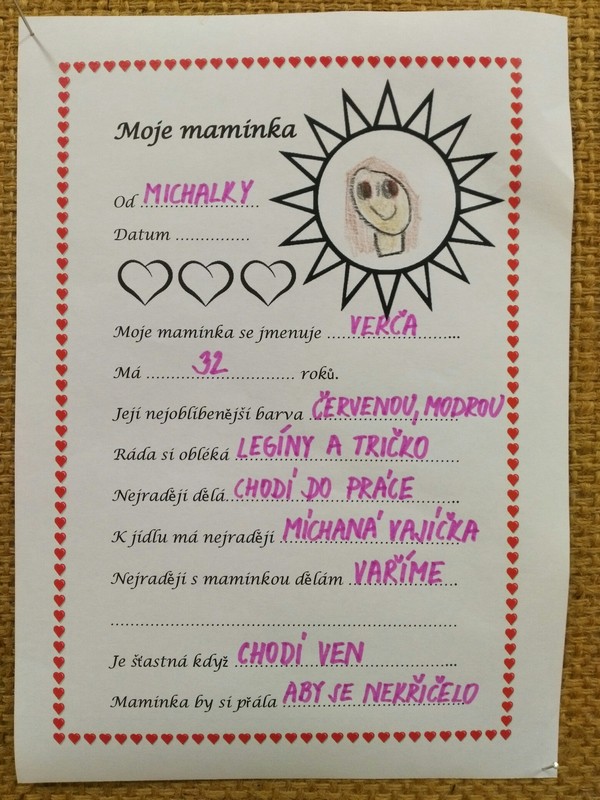 Moje maminka
Od MICHALKY
Datum ...............
Moje maminka se jmenuje VERČA
Má 32 roků.
Její nejoblíbenější barva ČERVENOU, MODROU
Ráda si obléká LEGÍNY A TRIČKO
Nejraději dělá CHODÍ DO PRÁCE
K jídlu má nejraději MÍCHANÁ VAJÍČKA
Nejraději s maminkou dělám VAŘÍME
Je šťastná když CHODÍ VEN
Maminka by si přála ABY SE NEKŘIČELO